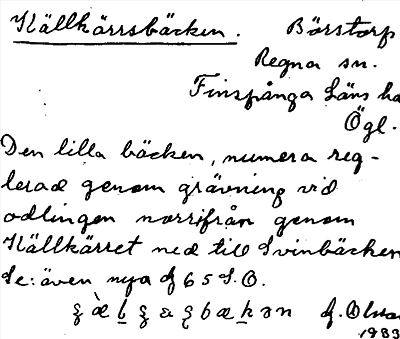 Källkärrsbäcken. Börstorp
Regna sn.
Finspånga Läns ha
Ögl.
Den lilla bäcken, numera reg-
lerad genom grävning vid
odlingen norrifrån genom
Källkärret ned till Svinbäcken
Se: även nya
65 S.O.
1933